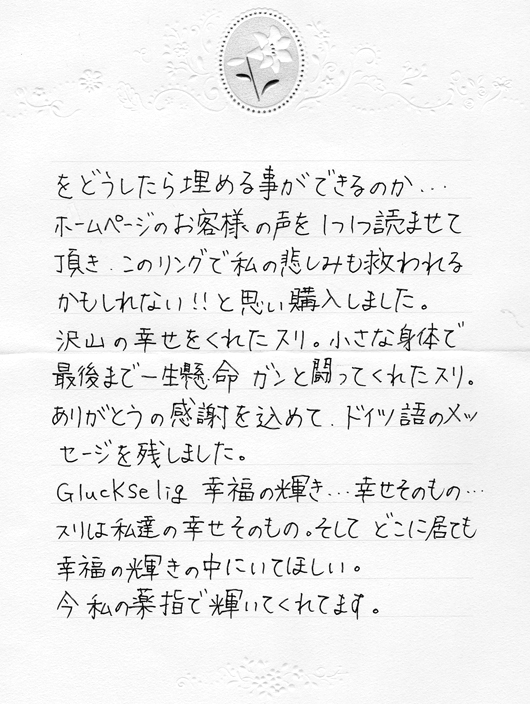 をどうしたら埋める事ができるのか…
ホームページのお客様の声を1つ1つ読ませて
頂き、このリングで私の悲しみも救われる
かもしれない!!と思い購入しました。
沢山の幸せをくれたスリ。小さな身体で
最後まで一生懸命 ガンと闘ってくれたスリ。
ありがとうの感謝を込めて、ドイツ語のメッ
セージを残しました。
Gluckselig 幸福の輝き…幸せそのもの…
スリは私達の幸せそのもの。そして どこに居ても
幸福の輝きの中にいてほしい。
今 私の薬指で輝いてくれてます。